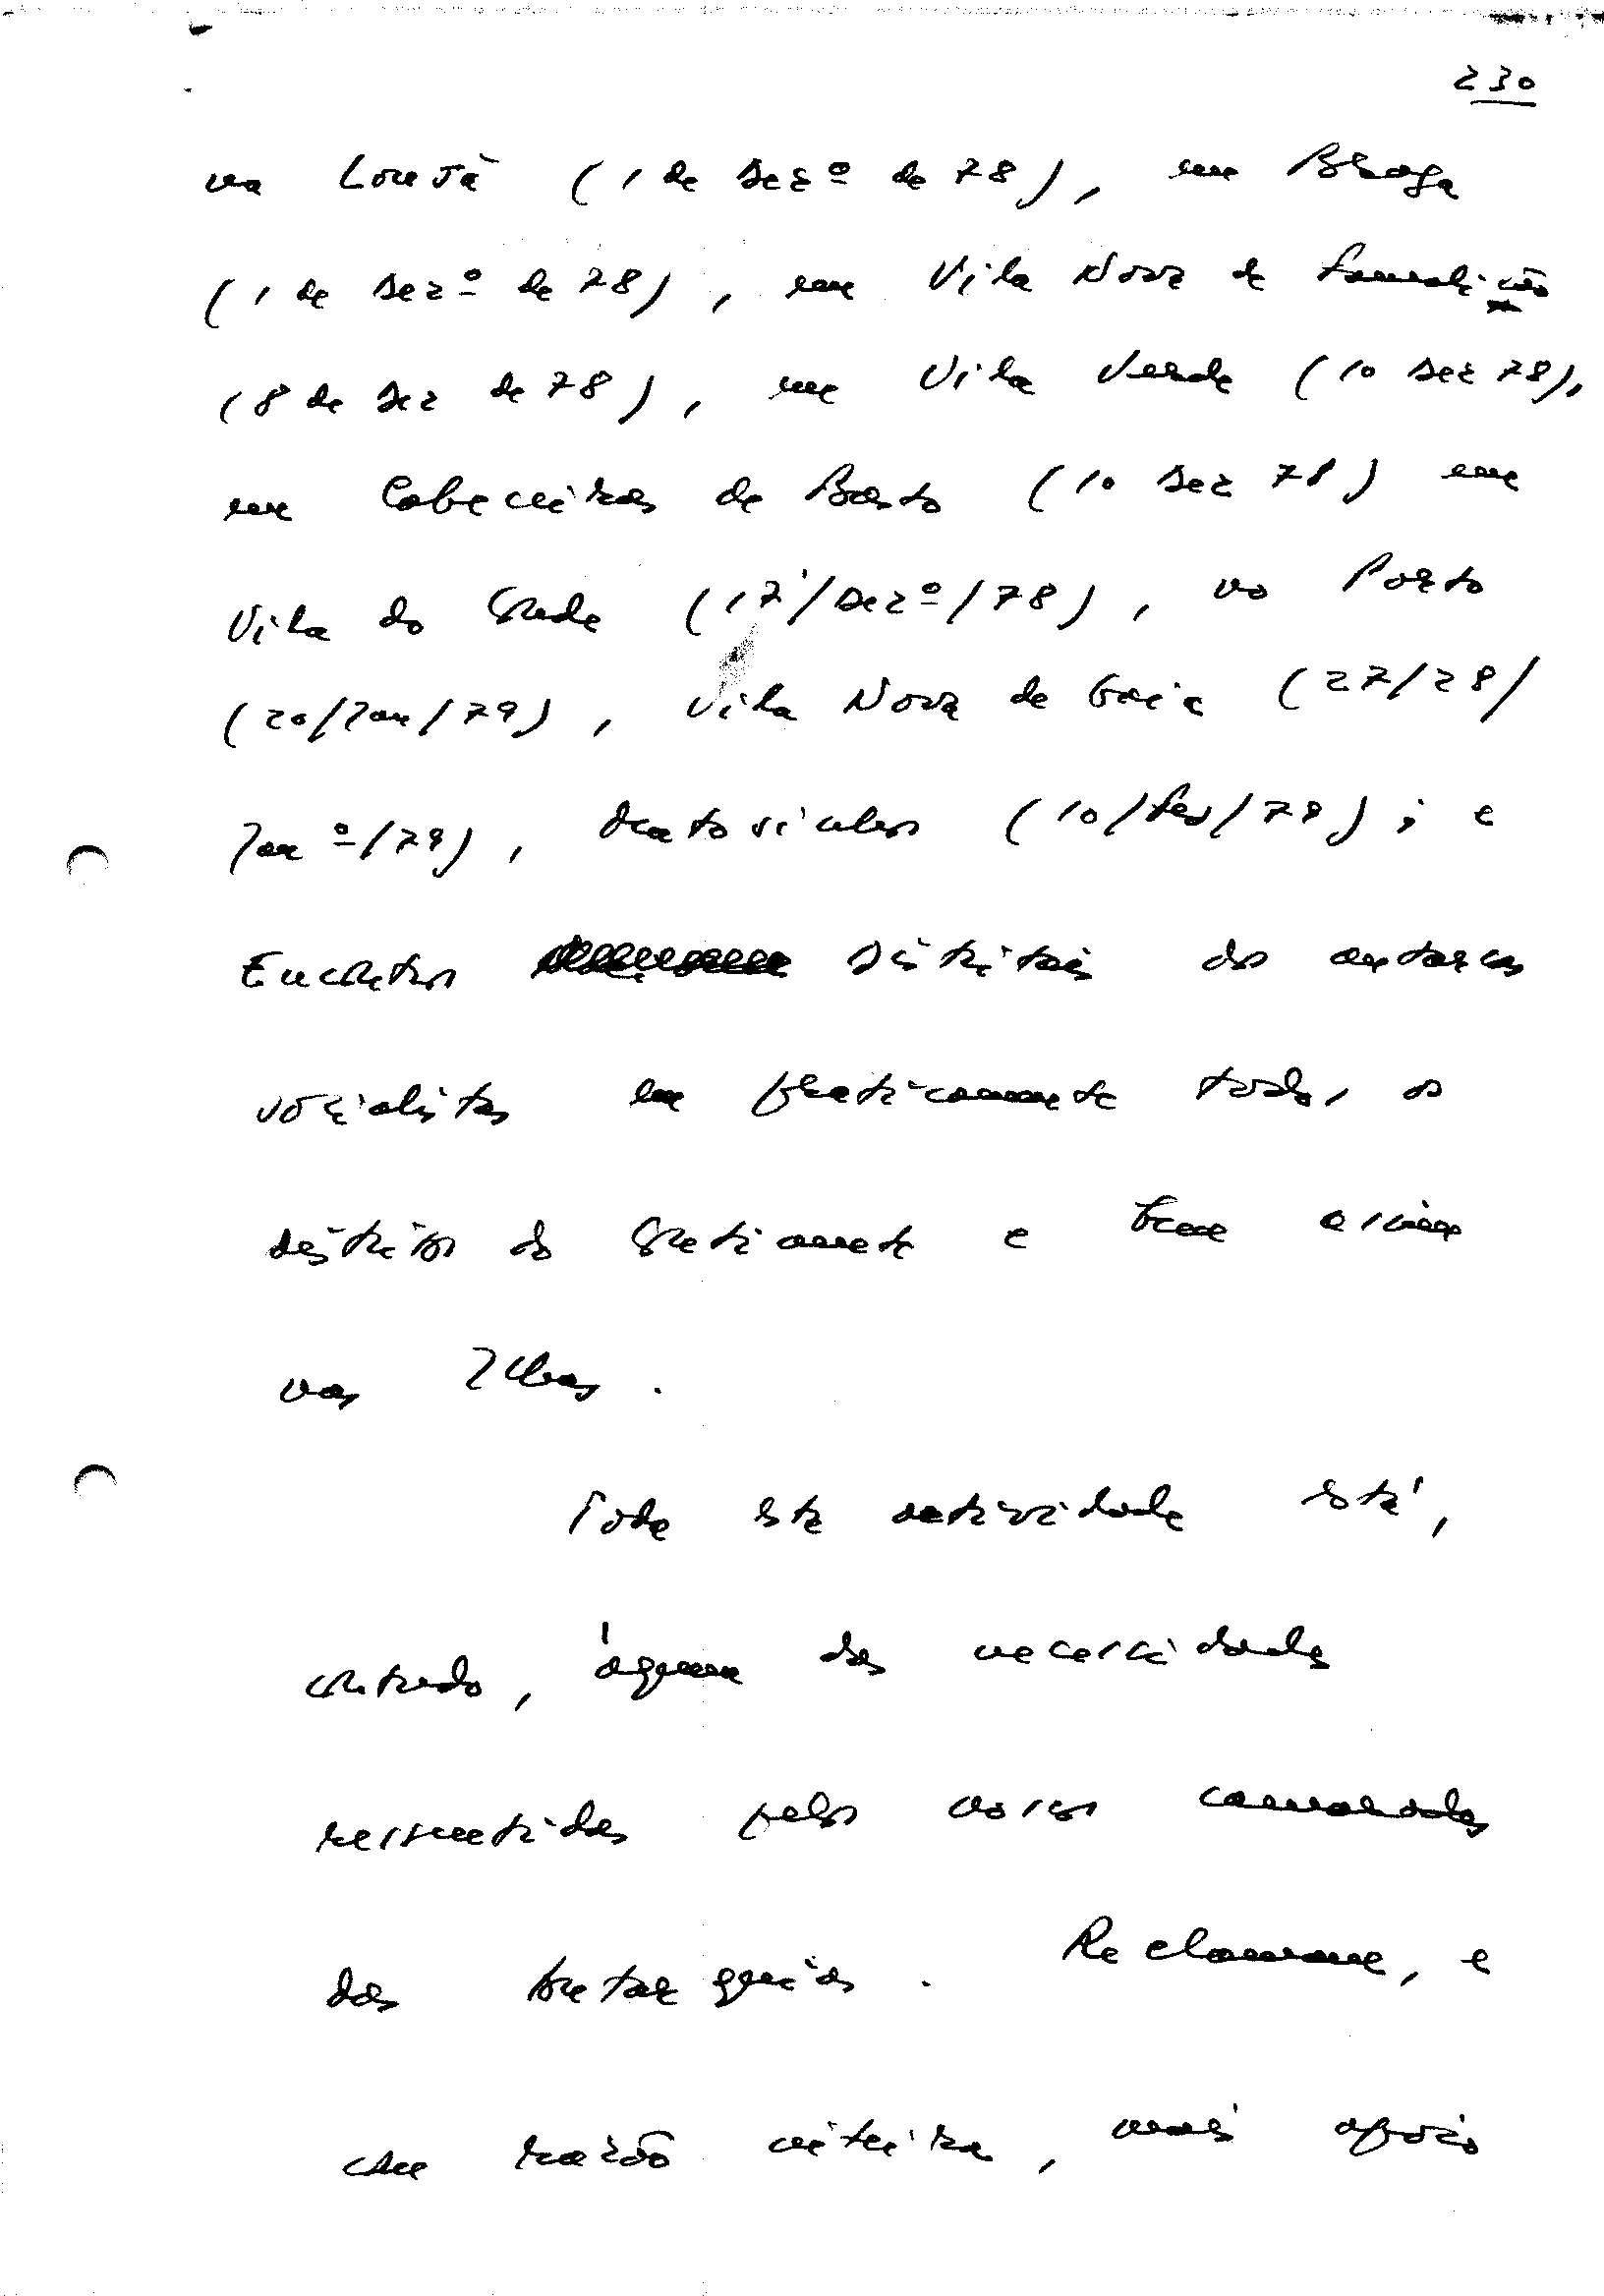 230
na Lousã (1 de Dezº de 78), em Braga
(1 de Dezº de 78), em Vila Nova de Famalicão
(8 de Dez de 78), em Vila Verde (10 Dez 78),
em Cabeceiras de Basto (10 Dez 78) em
Vila do Conde (17/Dezº/78), no Porto
(20/Jan/79), Vila Nova de Gaia (27/28/
Janº/79), (10/Fev/79); e
Encontros distritais de autarcas
socialistas em praticamente todos os
distritos do Continente e bem assim
nas Ilhas.
Toda esta actividade está,
contudo, àquem das necessidades
ressentidas pelos nossos camaradas
das Autarquias. Reclamam, e
com razão inteira, mais apoio